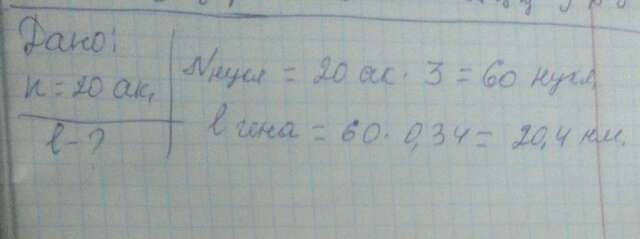 Дано:
n = 20 ак.
l - ?
Nнукл = 20 ак · 3 = 60 нукл.
l гена = 60 · 0,34 = 20,4 нм.